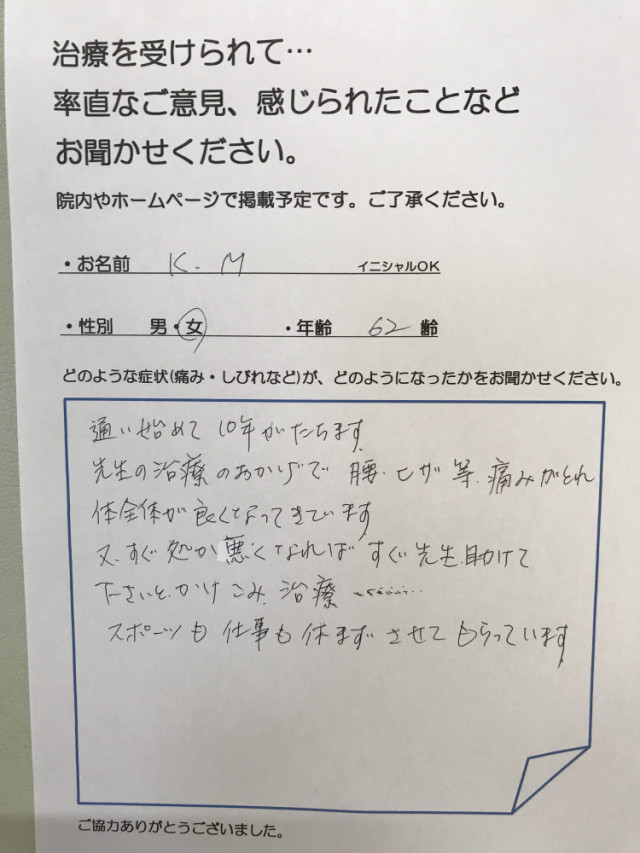 治療を受けられて…
率直なご意見、感じられたことなど
お聞かせください。
院内やホームページで掲載予定です。ご了承ください。
・お名前 K.M イニシャルOK
・性別 男・女 ・年齢 62 齢
どのような症状(痛み・しびれなど)が、どのようになったかをお聞かせください。
通い始めて10年がたちます
先生の治療のおかげで 腰・ヒザ 等.痛みがとれ
体全体が良くなってきています
又.すぐ 悪くなれば すぐ先生.助けて
下さいと.かけこみ.治療
スポーツも仕事も休まずさせてもらっています
ご協力ありがとうございました。